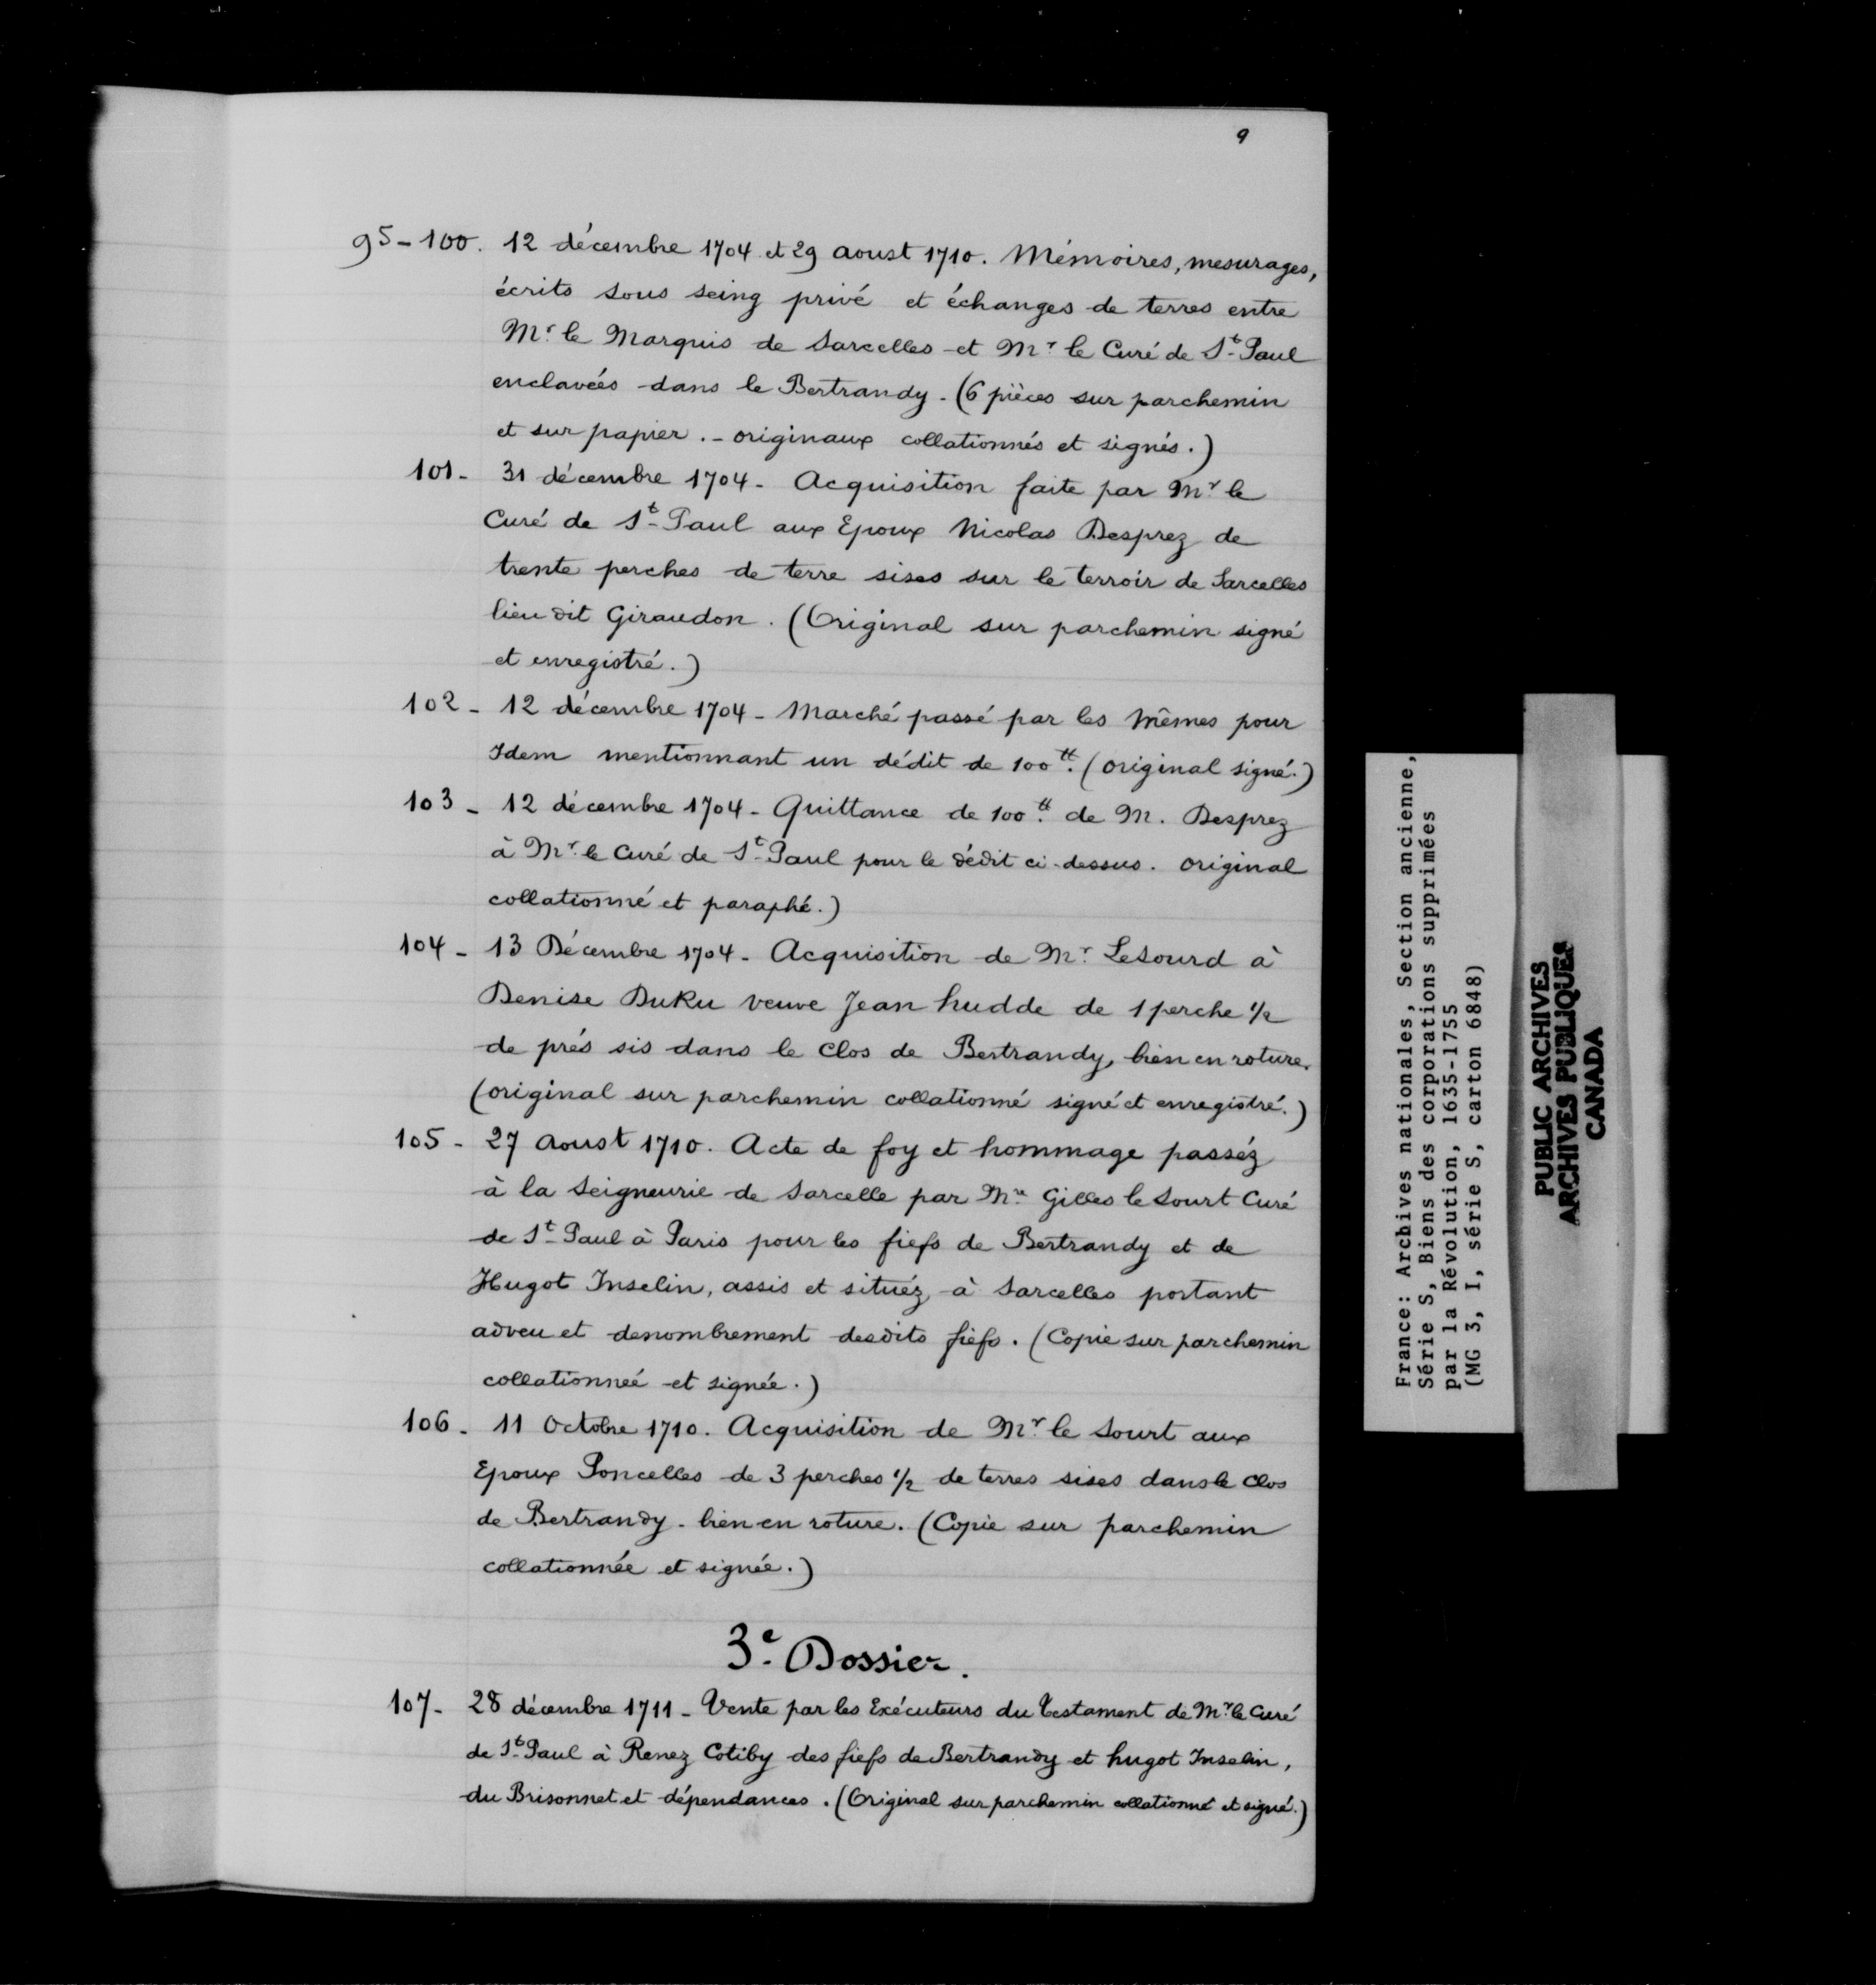 9
95-100. 12 décembre 1704 et 29 aoust 1710. Mémoires, mesurages,
écrits sous seing privé et échanges de terres entre
Mr. le Marquis de Sarcelles et Mr. le Curé de St. Paul
enclavées dans le Bertrandy. (6 pièces sur parchemin
et sur papier. - originaux collationnés et signés.)
101- 31 décembre 1704 - Acquisition faite par Mr. le
Curé de St. Paul aux Epoux Nicolas Desprez de
trente perches de terre sises sur le terroir de Sarcelles
lieu dit Giraudon. (Original sur parchemin signé
et enregistré.)
102- 12 décembre 1704 - Marché passé par les mêmes pour
Idem mentionnant un dédit de 100 tt. (original signé.)
103- 12 décembre 1704 - Quittance de 100 tt. de M. Desprez
à Mr. le Curé de St. Paul pour le dédit ci-dessus. original
collationné et paraphé.)
104- 13 Décembre 1704 - Acquisition de Mr. LeSourd à
Denise DuRu veuve Jean hudde de 1 perche 1/2
de prés sis dans le Clos de Bertrandy, bien en roture.
(original sur parchemin collationné signé et enregistré.)
105- 27 Aoust 1710. Acte de foy et hommage passéz
à la Seigneurie de Sarcelle par Mre Gilles le Sourt Curé
de St. Paul à Paris pour les fiefs de Bertrandy et de
Hugot Inselin, assis et situéz à Sarcelles portant
adveu et denombrement desdits fiefs. (Copie sur parchemin
collationneé et signée.)
106- 11 Octobre 1710. Acquisition de Mr. le Sourt aux
Epoux Poncelles de 3 perches 1/2 de terres sises dans le Clos
de Bertrandy - bien en roture. (Copie sur parchemin
collationnée et signée.)
3e. Dossier.
107- 28 décembre 1711 - Vente par les Exécuteurs du Testament de Mr. le Curé
de St. Paul à Renez Cotiby des fiefs de Bertrandy et hugot Inselin,
du Brisonnet et dépendances. (Original sur parchemin collationné et signé.)
France: Archives nationales, Section ancienne,
Série S, Biens des corporations supprimées
par la Révolution, 1635-1755
(MG 3, I, série S, carton 6848)
PUBLIC ARCHIVES
ARCHIVES PUBLIQUES
CANADA